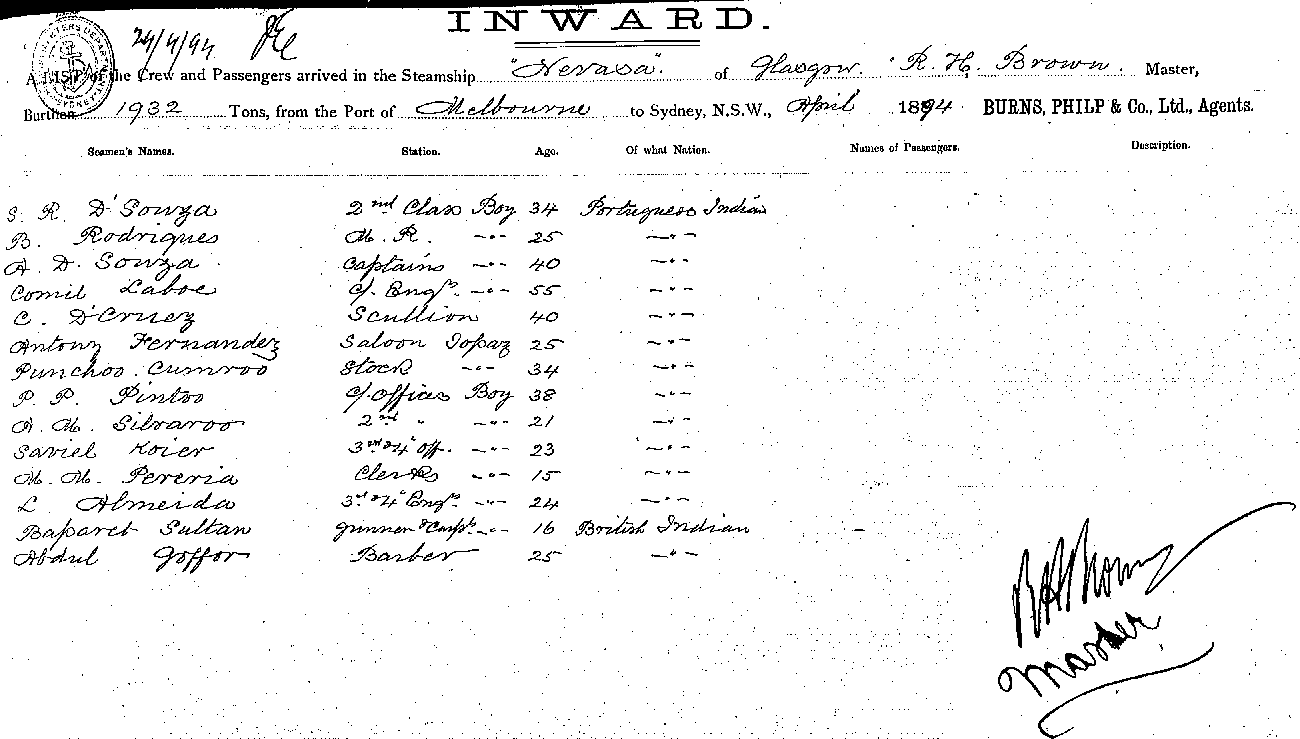 INWARD.
24/4/94
A LIST of the Crew and Passengers arrived in the Steamship "Nevasa" of Glasgow. R. H. Brown. Master,
Burthen 1932 Tons, from the Port of Melbourne to Sydney, N.S.W., April 1894 BURNS, PHILP & Co., Ltd., Agents.
Seamen's Names. Station. Age. Of what Nation. Names of Passengers. Description.
S. R. D'Souza 2nd Class Boy 34 Portuguese Indian
B. Rodriques M. R. -"- 25 -"-
A. D. Souza Captains -"- 40 -"-
Comil Laboe C/. Engrs. -"- 55 -"-
C. D'Cruez Scullion 40 -"-
Antony Fernandez Saloon Topaz 25 -"-
Punchoo Cumroo Stock -"- 34 -"-
P. P. Pintoo C/. Offices Boy 38 -"-
A. M. Silvaroo 2nd " -"- 21 -"-
Saviel Koier 3rd & 4th Off. -"- 23 -"-
M. M. Pereria Clerks -"- 15 -"-
L Almeida 3rd & 4th Engrs -"- 24 -"-
Baparet Sultan Gunner & Carp's -"- 16 British Indian
Abdul Goffor Barber 25 -"-
R H Brown
Master